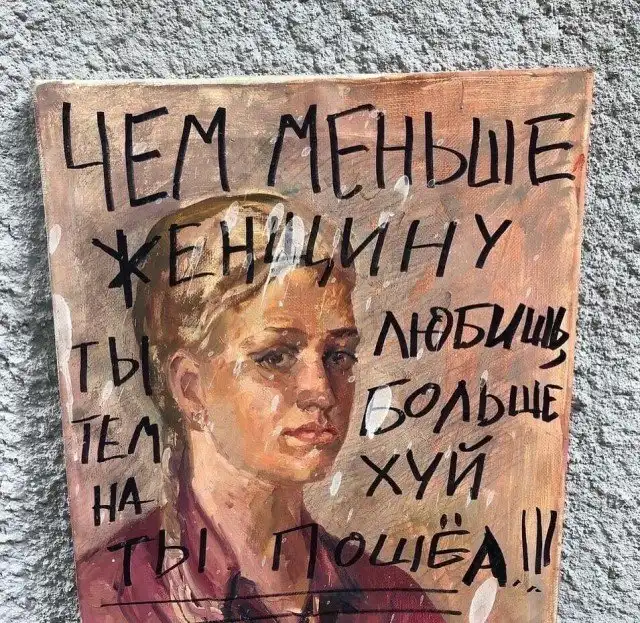 ЧЕМ МЕНЬШЕ
ЖЕНЩИНУ
ТЫ ЛЮБИШЬ,
ТЕМ БОЛЬШЕ
НА ХУЙ
ТЫ ПОШЁЛ!!!